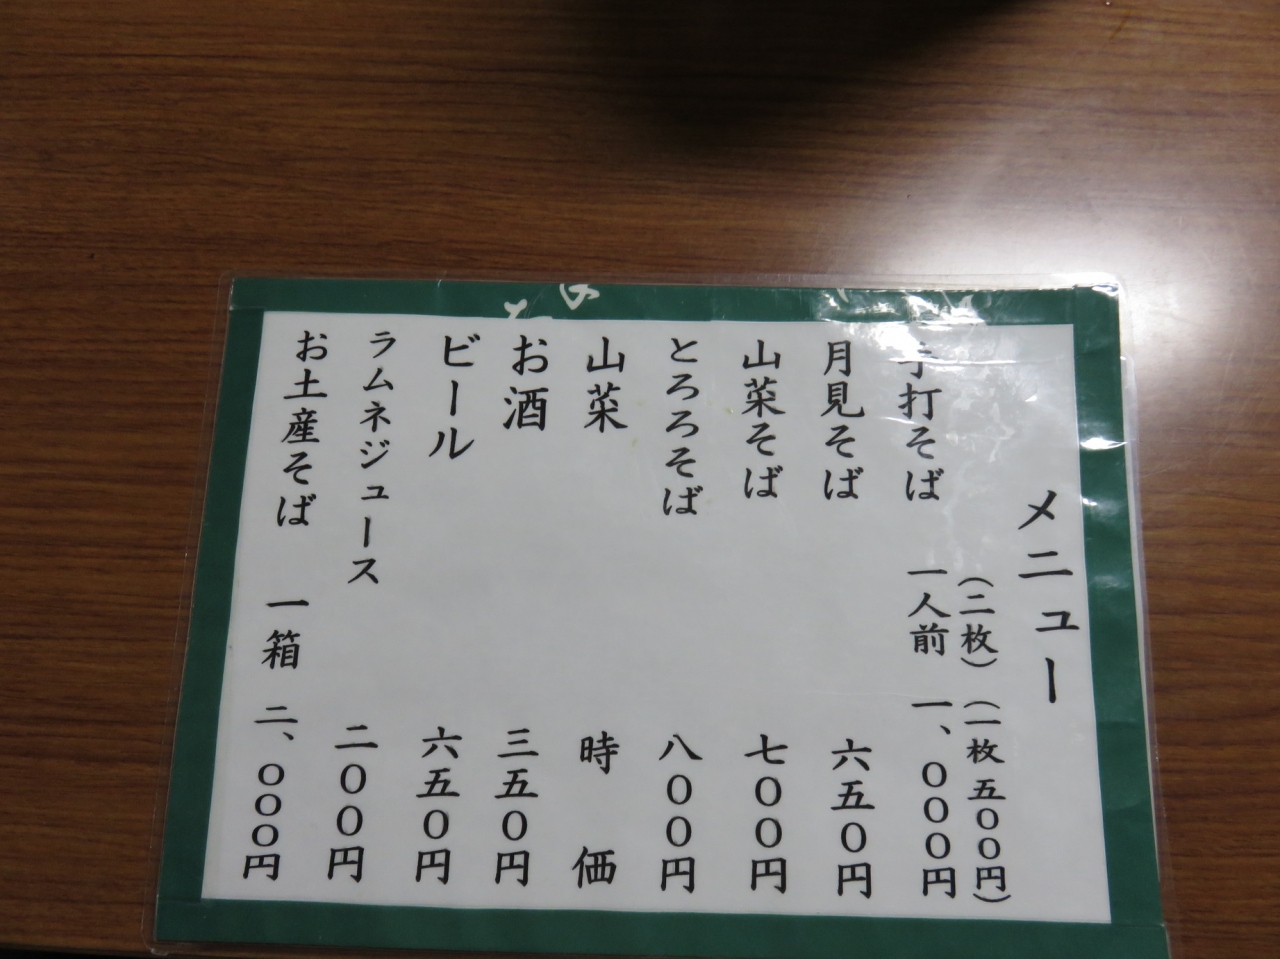 メニュー
（二枚）（一枚五〇〇円）
手打そば 一人前 一、〇〇〇円
月見そば 六五〇円
山菜そば 七〇〇円
とろろそば 八〇〇円
山菜 時価
お酒 三五〇円
ビール 六五〇円
ラムネジュース 二〇〇円
お土産そば 一箱 二、〇〇〇円